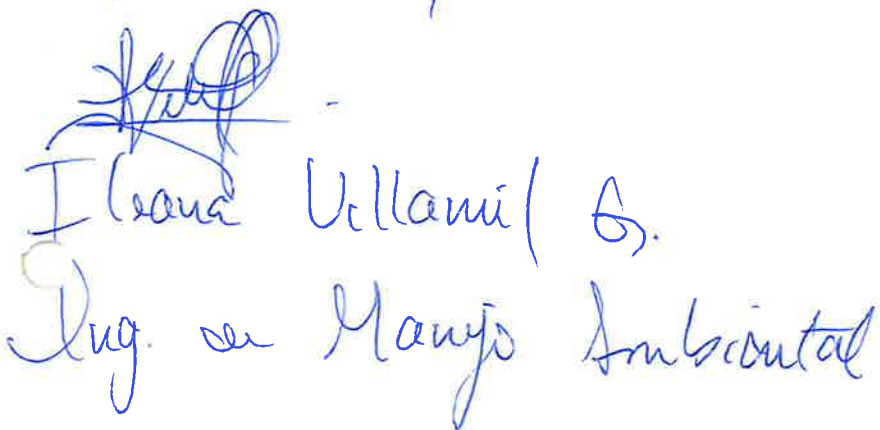 Ileana Villamil G.
Ing. en Manejo Ambiental